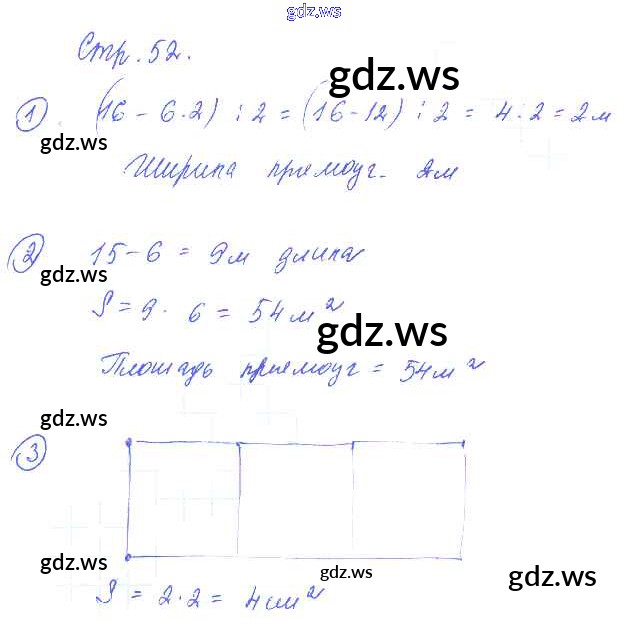 gdz.ws
Стр. 52.
gdz.ws
1 (16 - 6·2) : 2 = (16-12) : 2 = 4:2 = 2м
gdz.ws
Ширина прямоуг. 2м
2 15-6 = 9м длина
gdz.ws
S = 9 · 6 = 54 м²
gdz.ws
Площадь прямоуг = 54м²
gdz.ws
3
gdz.ws
gdz.ws
gdz.ws
S = 2·2 = 4см²